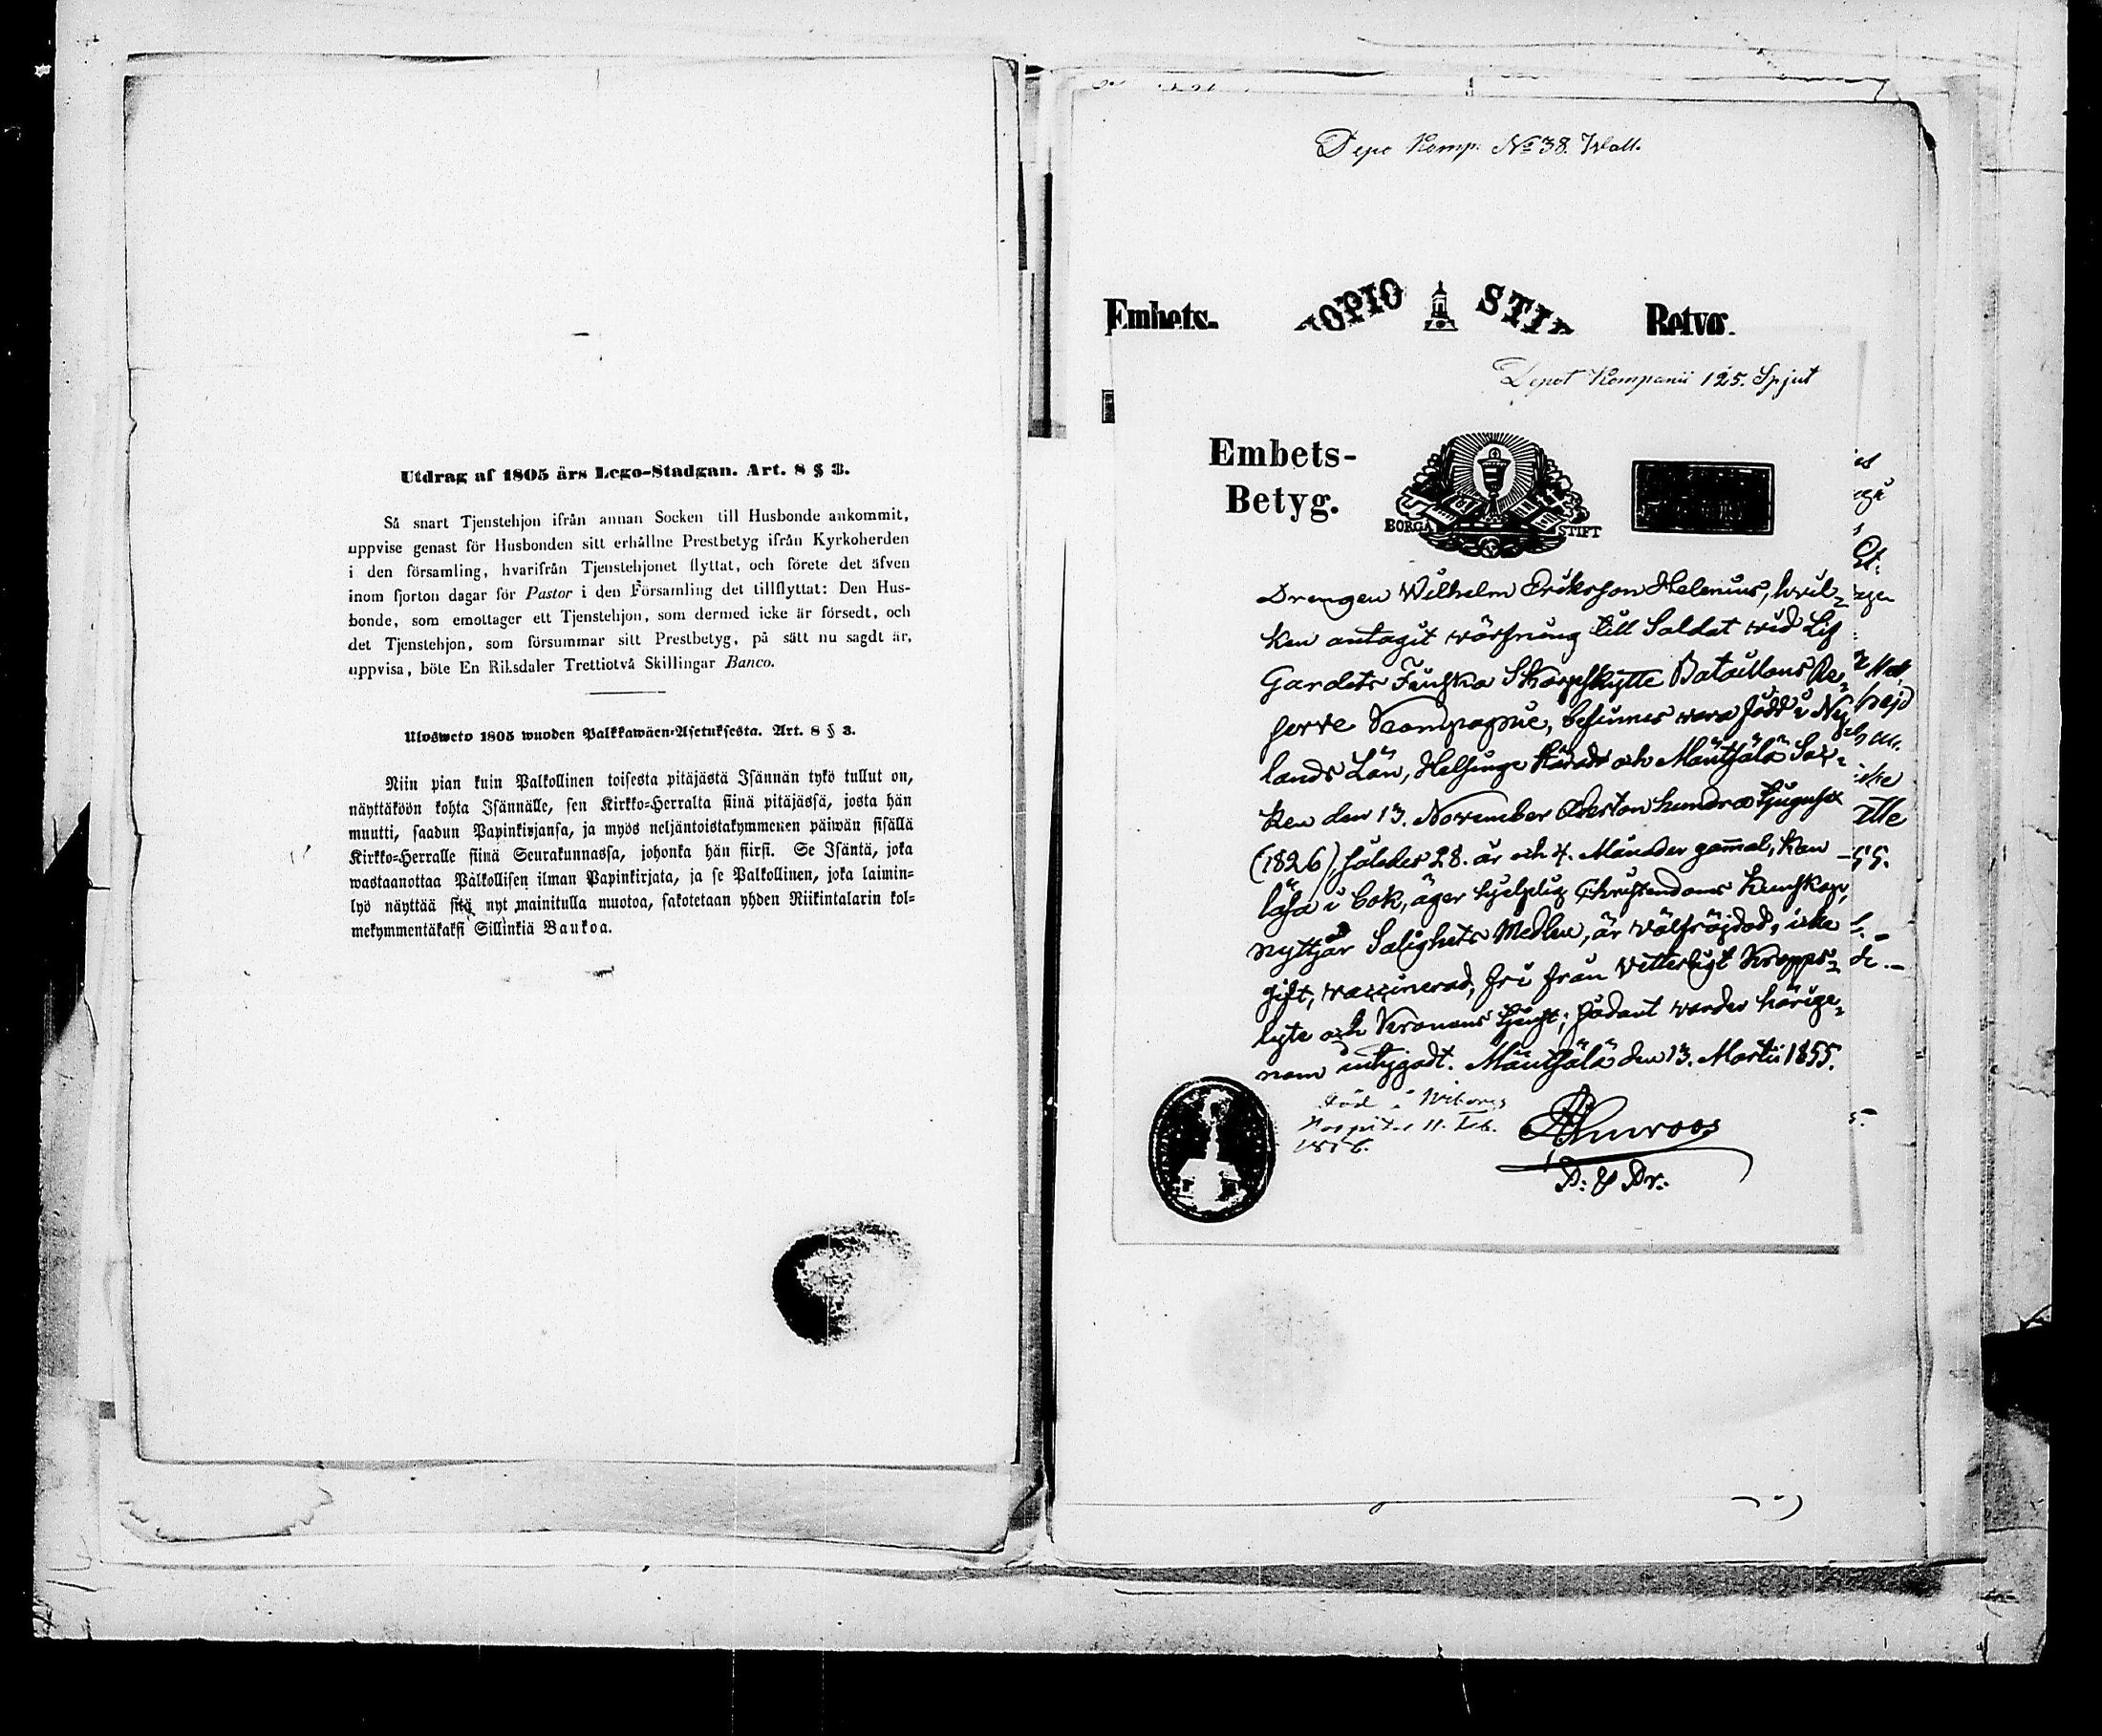 Utdrag af 1805 års Lego-Stadgan. Art. 8 § 3.
Så snart Tjenstehjon ifrån annan Socken till Husbonde ankommit,
uppvise genast för Husbonden sitt erhållne Prestbetyg ifrån Kyrkoherden
i den församling, hvarifrån Tjenstehjonet flyttat, och förete det äfven
inom fjorton dagar för Pastor i den Församling det tillflyttat: Den Hus-
bonde, som emottager ett Tjenstehjon, som dermed icke är försedt, och
det Tjenstehjon, som försummar sitt Prestbetyg, på sätt nu sagdt är,
uppvisa, böte En Riksdaler Trettiotvå Skillingar Banco.
Ulosweto 1805 wuoden Palkkawäen-Asetuksesta. Art. 8 § 3.
Niin pian kuin Palkollinen toisesta pitäjästä Isännän tykö tullut on,
näyttäköön kohta Isännälle, sen Kirkko-Herralta siinä pitäjässä, josta hän
muutti, saadun Papinkirjansa, ja myös neljäntoistakymmenen päiwän sisällä
Kirkko-Herralle siinä Seurakunnassa, johonka hän siirsi. Se Isäntä, joka
wastaanottaa Palkollisen ilman Papinkirjata, ja se Palkollinen, joka laimin-
lyö näyttää sitä nyt mainitulla muotoa, sakotetaan yhden Riikintalarin kol-
mekymmentäkaksi Sillinkiä Bankoa.
Depo Komp. No 38. Wall.
Embets- OPIO STI Betyg.
Depot Kompanii 125. Spjut
Embets-
Betyg.
BORGÅ STIFT
Drengen Wilhelm Eriksson Helenius, hvil-
ken antagit värfning till Soldat wid Lif
Gardets Finska Skarpskytte Bataillons Re-
serve Kompagnie, befinnes vara född i Ny
lands Län, Helsinge Härad och Mäntsälä Soc-
ken den 13. November Aderton hundra tjugusex
(1826) således 28. år och 4. Månader gammal, kan
läsa i bok, äger hjelplig Christendoms kunskap,
nyttjar Salighets Medlen, är välfräjdad, icke
gift, vaccinerad, fri från vetterligt Kropps-
lyte och Kronans tjenst; sådant varder härige-
nom intygadt. Mäntsälä den 13. Martii 1855.
Död i Wiborgs
Hospital 11. Feb.
1856.